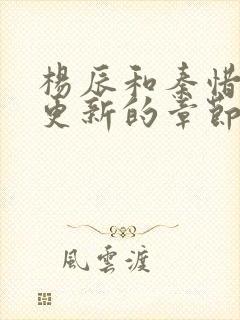 楊辰和秦惜
更新的章節
風雲渡